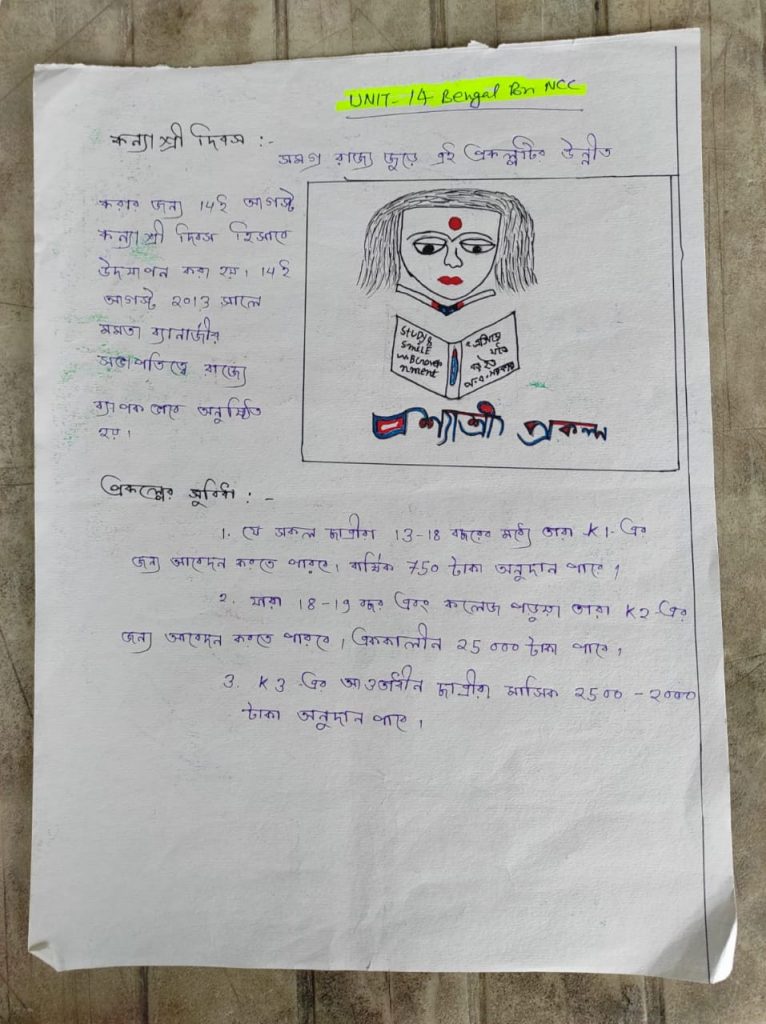 UNIT- 14 Bengal Bn NCC
কন্যাশ্রী দিবস :-
সমগ্র রাজ্য জুড়ে এই প্রকল্পটির উন্নীত
করার জন্য 14ই আগস্ট
কন্যাশ্রী দিবস হিসাবে
উদযাপন করা হয়। 14ই
আগস্ট ২০১৩ সালে
মমতা ব্যানার্জীর
সভাপতিত্বে রাজ্যে
ব্যাপক ভাবে অনুষ্ঠিত
হয়।
Study &
Smile
প্রকল্প
প্রকল্পের সুবিধা :-
1. যে সকল ছাত্রীরা 13-18 বছরের মধ্যে তারা K1-এর
জন্য আবেদন করতে পারবে। বার্ষিক 750 টাকা অনুদান পাবে।
2. যারা 18-19 বছর এবং কলেজ পড়ুয়া তারা K2-এর
জন্য আবেদন করতে পারবে। এককালীন 25000 টাকা পাবে।
3. K3-এর আওতাধীন ছাত্রীরা মাসিক 2500 - 2000
টাকা অনুদান পাবে।